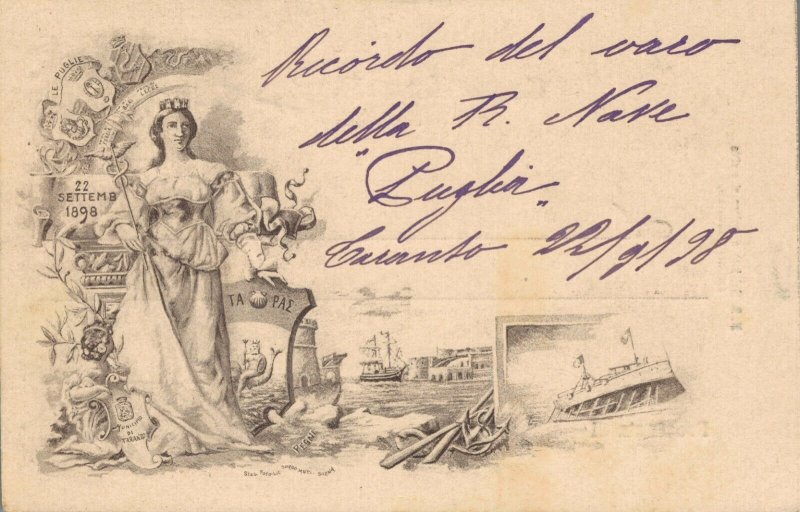 LE PUGLIE
22
SETTEMB
1898
Ricordo del varo
della R. Nave
"Puglia"
Taranto 22/9/98
ΤΑ ΡΑΣ
MUNICIPIO
DI
TARANTO